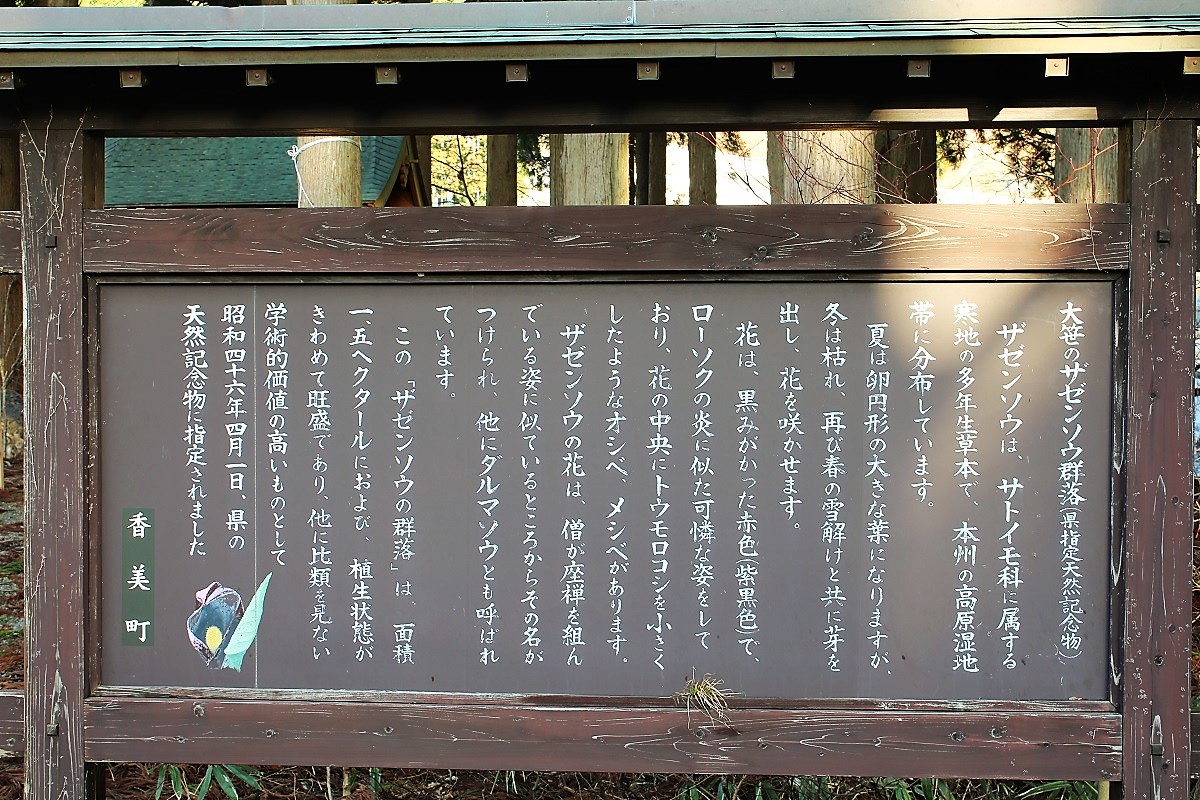 大笹のザゼンソウ群落(県指定天然記念物)
ザゼンソウは、サトイモ科に属する
寒地の多年生草本で、本州の高原湿地
帯に分布しています。
夏は卵円形の大きな葉になりますが、
冬は枯れ、再び春の雪解けと共に芽を
出し、花を咲かせます。
花は、黒みがかった赤色(紫黒色)で、
ローソクの炎に似た可憐な姿をして
おり、花の中央にトウモロコシを小さく
したようなオシベ、メシベがあります。
ザゼンソウの花は、僧が座禅を組ん
でいる姿に似ているところからその名が
つけられ、他にダルマソウとも呼ばれ
ています。
この「ザゼンソウの群落」は、面積
一、五ヘクタールにおよび、植生状態が
きわめて旺盛であり、他に比類を見ない
学術的価値の高いものとして
昭和四十六年四月一日、県の
天然記念物に指定されました
香美町